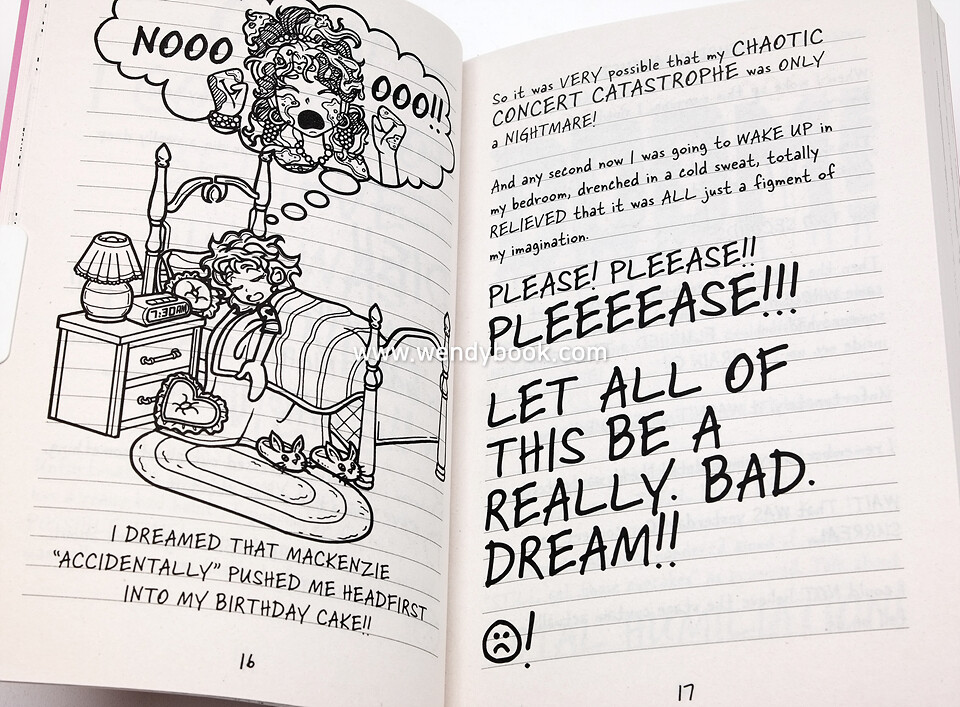 NOOO
OOO!!
7:30AM
I DREAMED THAT MACKENZIE
"ACCIDENTALLY" PUSHED ME HEADFIRST
INTO MY BIRTHDAY CAKE!!
16
So it was VERY possible that my CHAOTIC
CONCERT CATASTROPHE was ONLY
a NIGHTMARE!
And any second now I was going to WAKE UP in
my bedroom, drenched in a cold sweat, totally
RELIEVED that it was ALL just a figment of
my imagination.
PLEASE! PLEEASE!!
PLEEEEASE!!!
LET ALL OF
THIS BE A
REALLY. BAD.
DREAM!!
!
17
www.wendybook.com